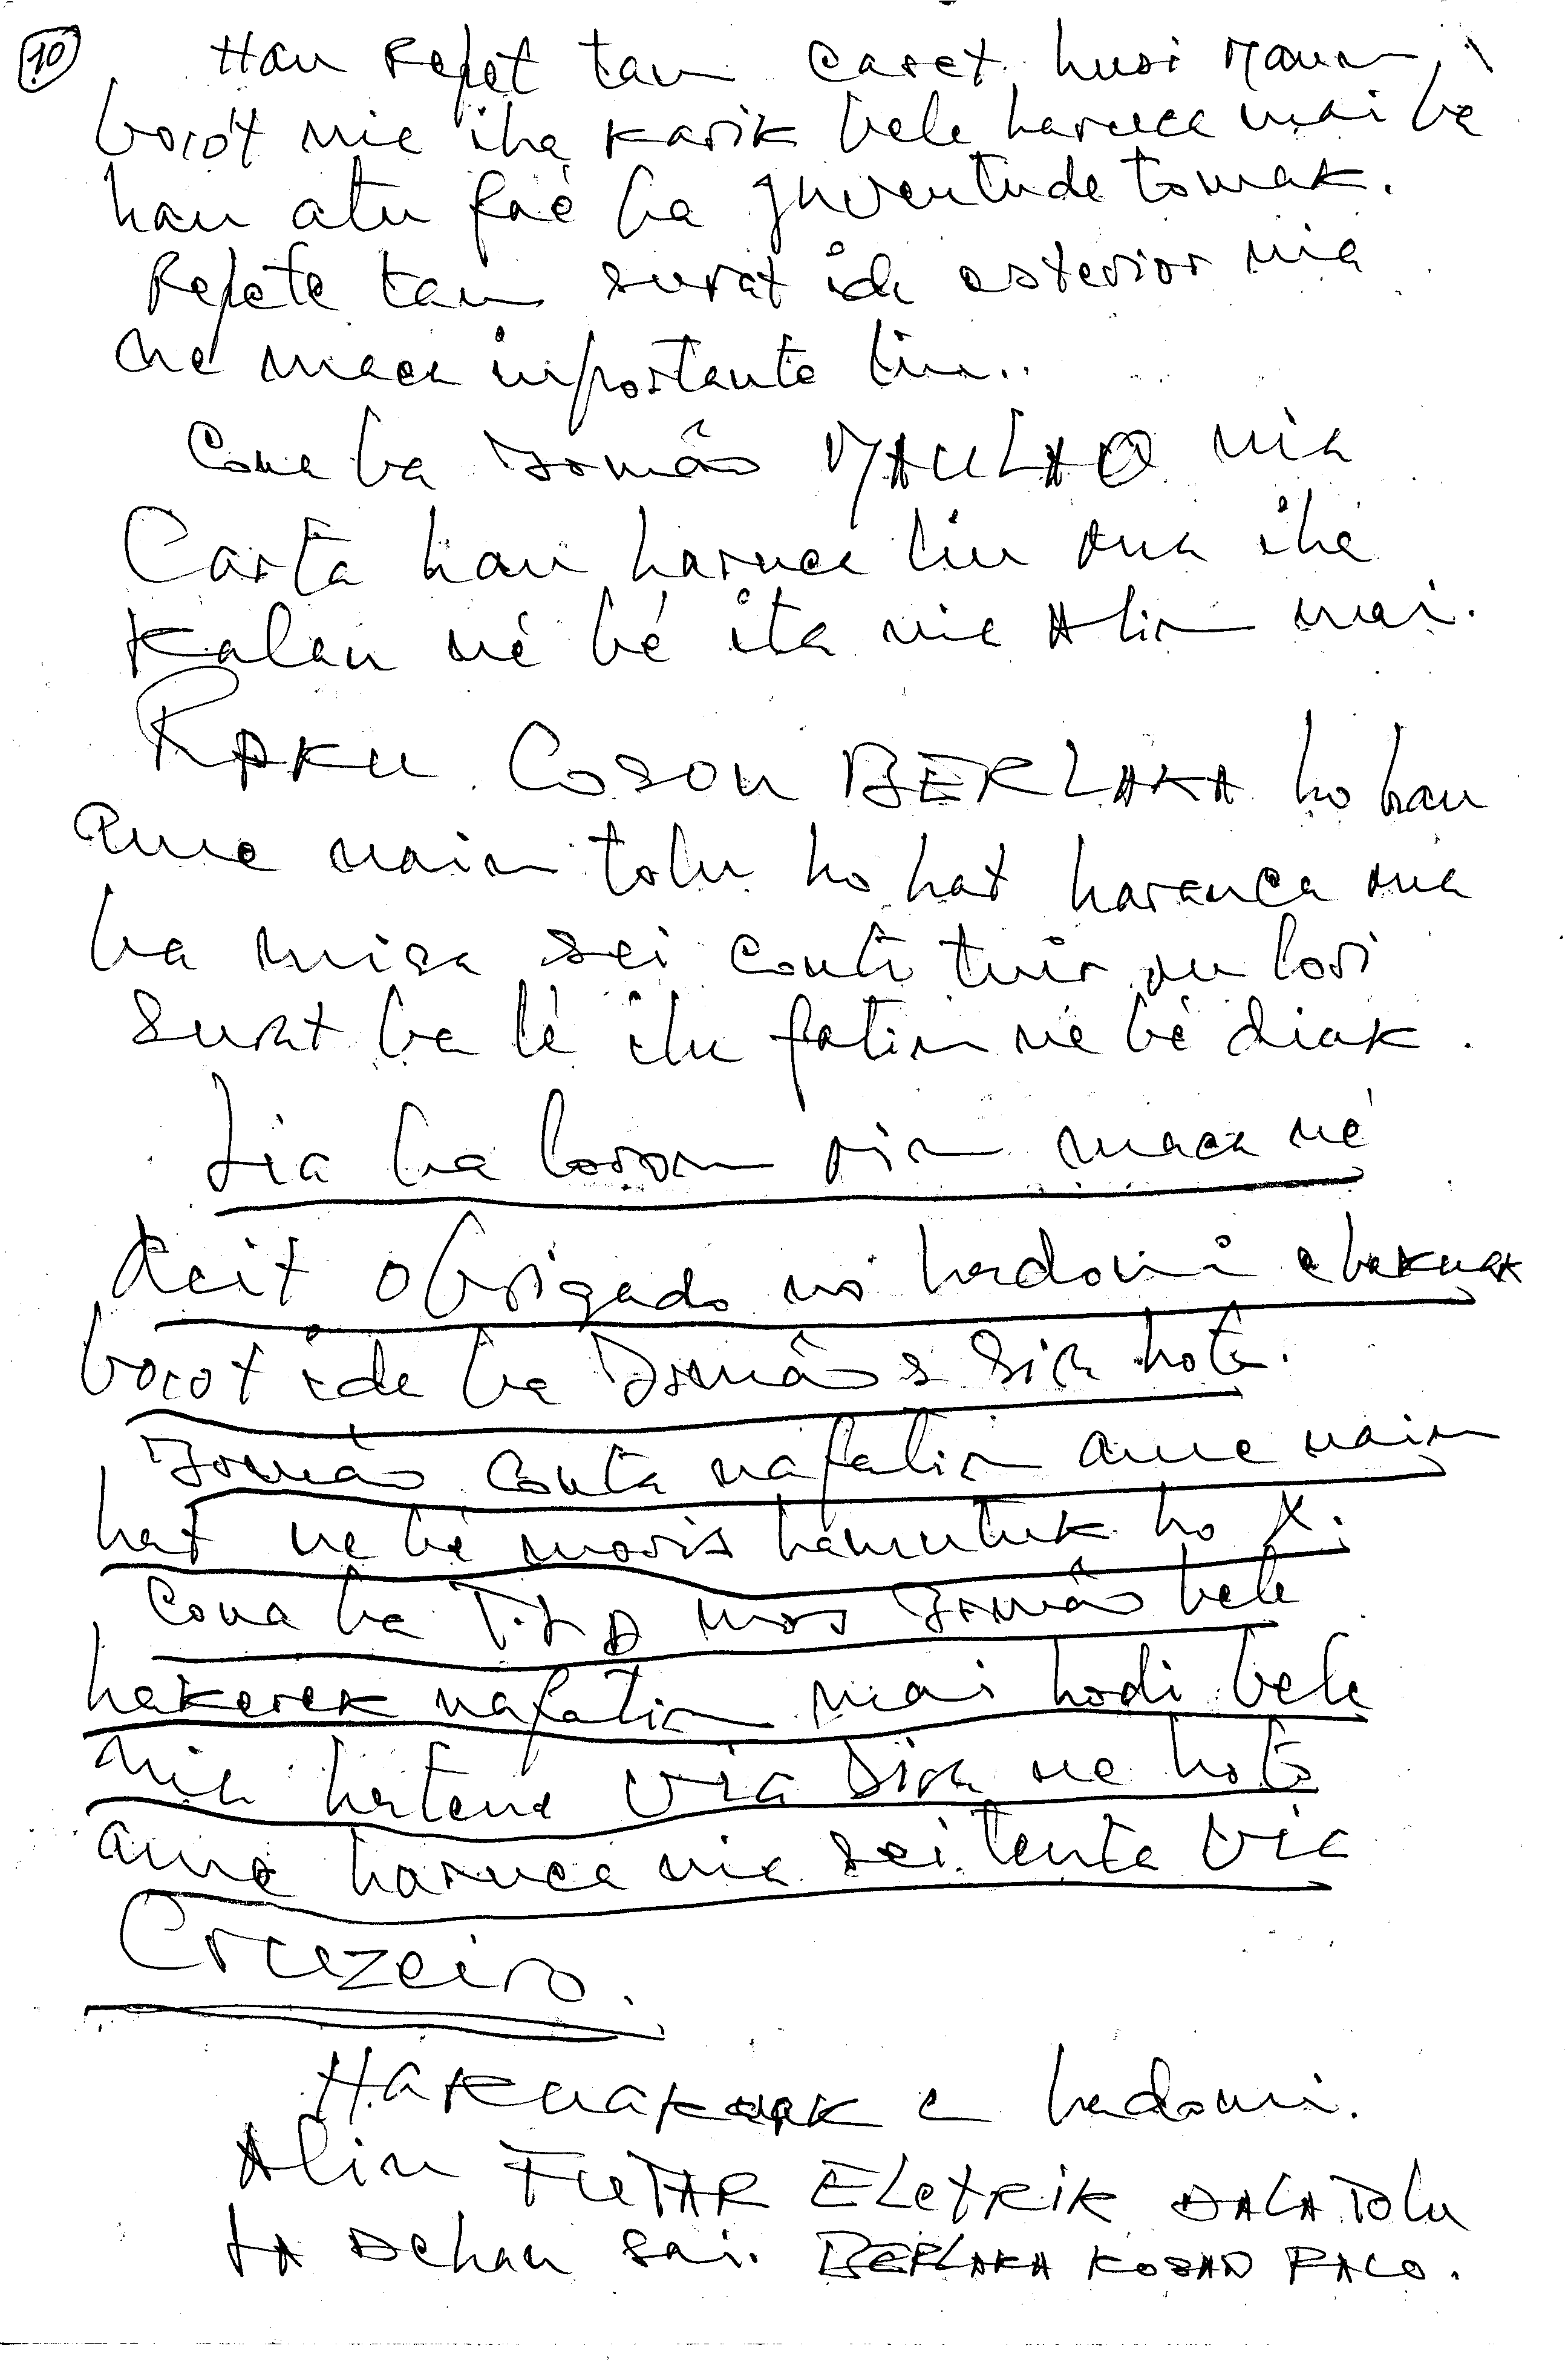 10
Hau Repet tan caset husi Maun
bocót nia iha karik bele haruca mai ba
hau atu faé ba Juventude tomak.
Repete tan surat ida exterior nia
ne maca inportante liu..
Cona ba Irmão MAULAO nia
Carta hau haruca liu ona iha
Kalan né bé ita nia Alin mai.
RAKU Coson BERLAKA ho hau
ame nain tolu ho hat haruca ona
ba misa sei conti tuir nu lori
Surat ba lé ilu fatin ne bé diak.
Lia ba loron sin maca né
Aeit obrigado no hadomi e hakuak
bocot ida ba Irmãos sira hotu.
Irmão conta nafatin ame nain
hat ne bé moris hamutuk ho X.
Cona ba T.L.D mos Irmão bele
hakerek nafatin mai hodi bele
nia hatene via sira ne hoto
ame haruca nia sei tenta via
Cruzeiro.
Hakuak e hadomi.
Alin FUTAR ELetRik DALA Tolu
LA Dehan sai. BERLAKA KOSAN RACO.